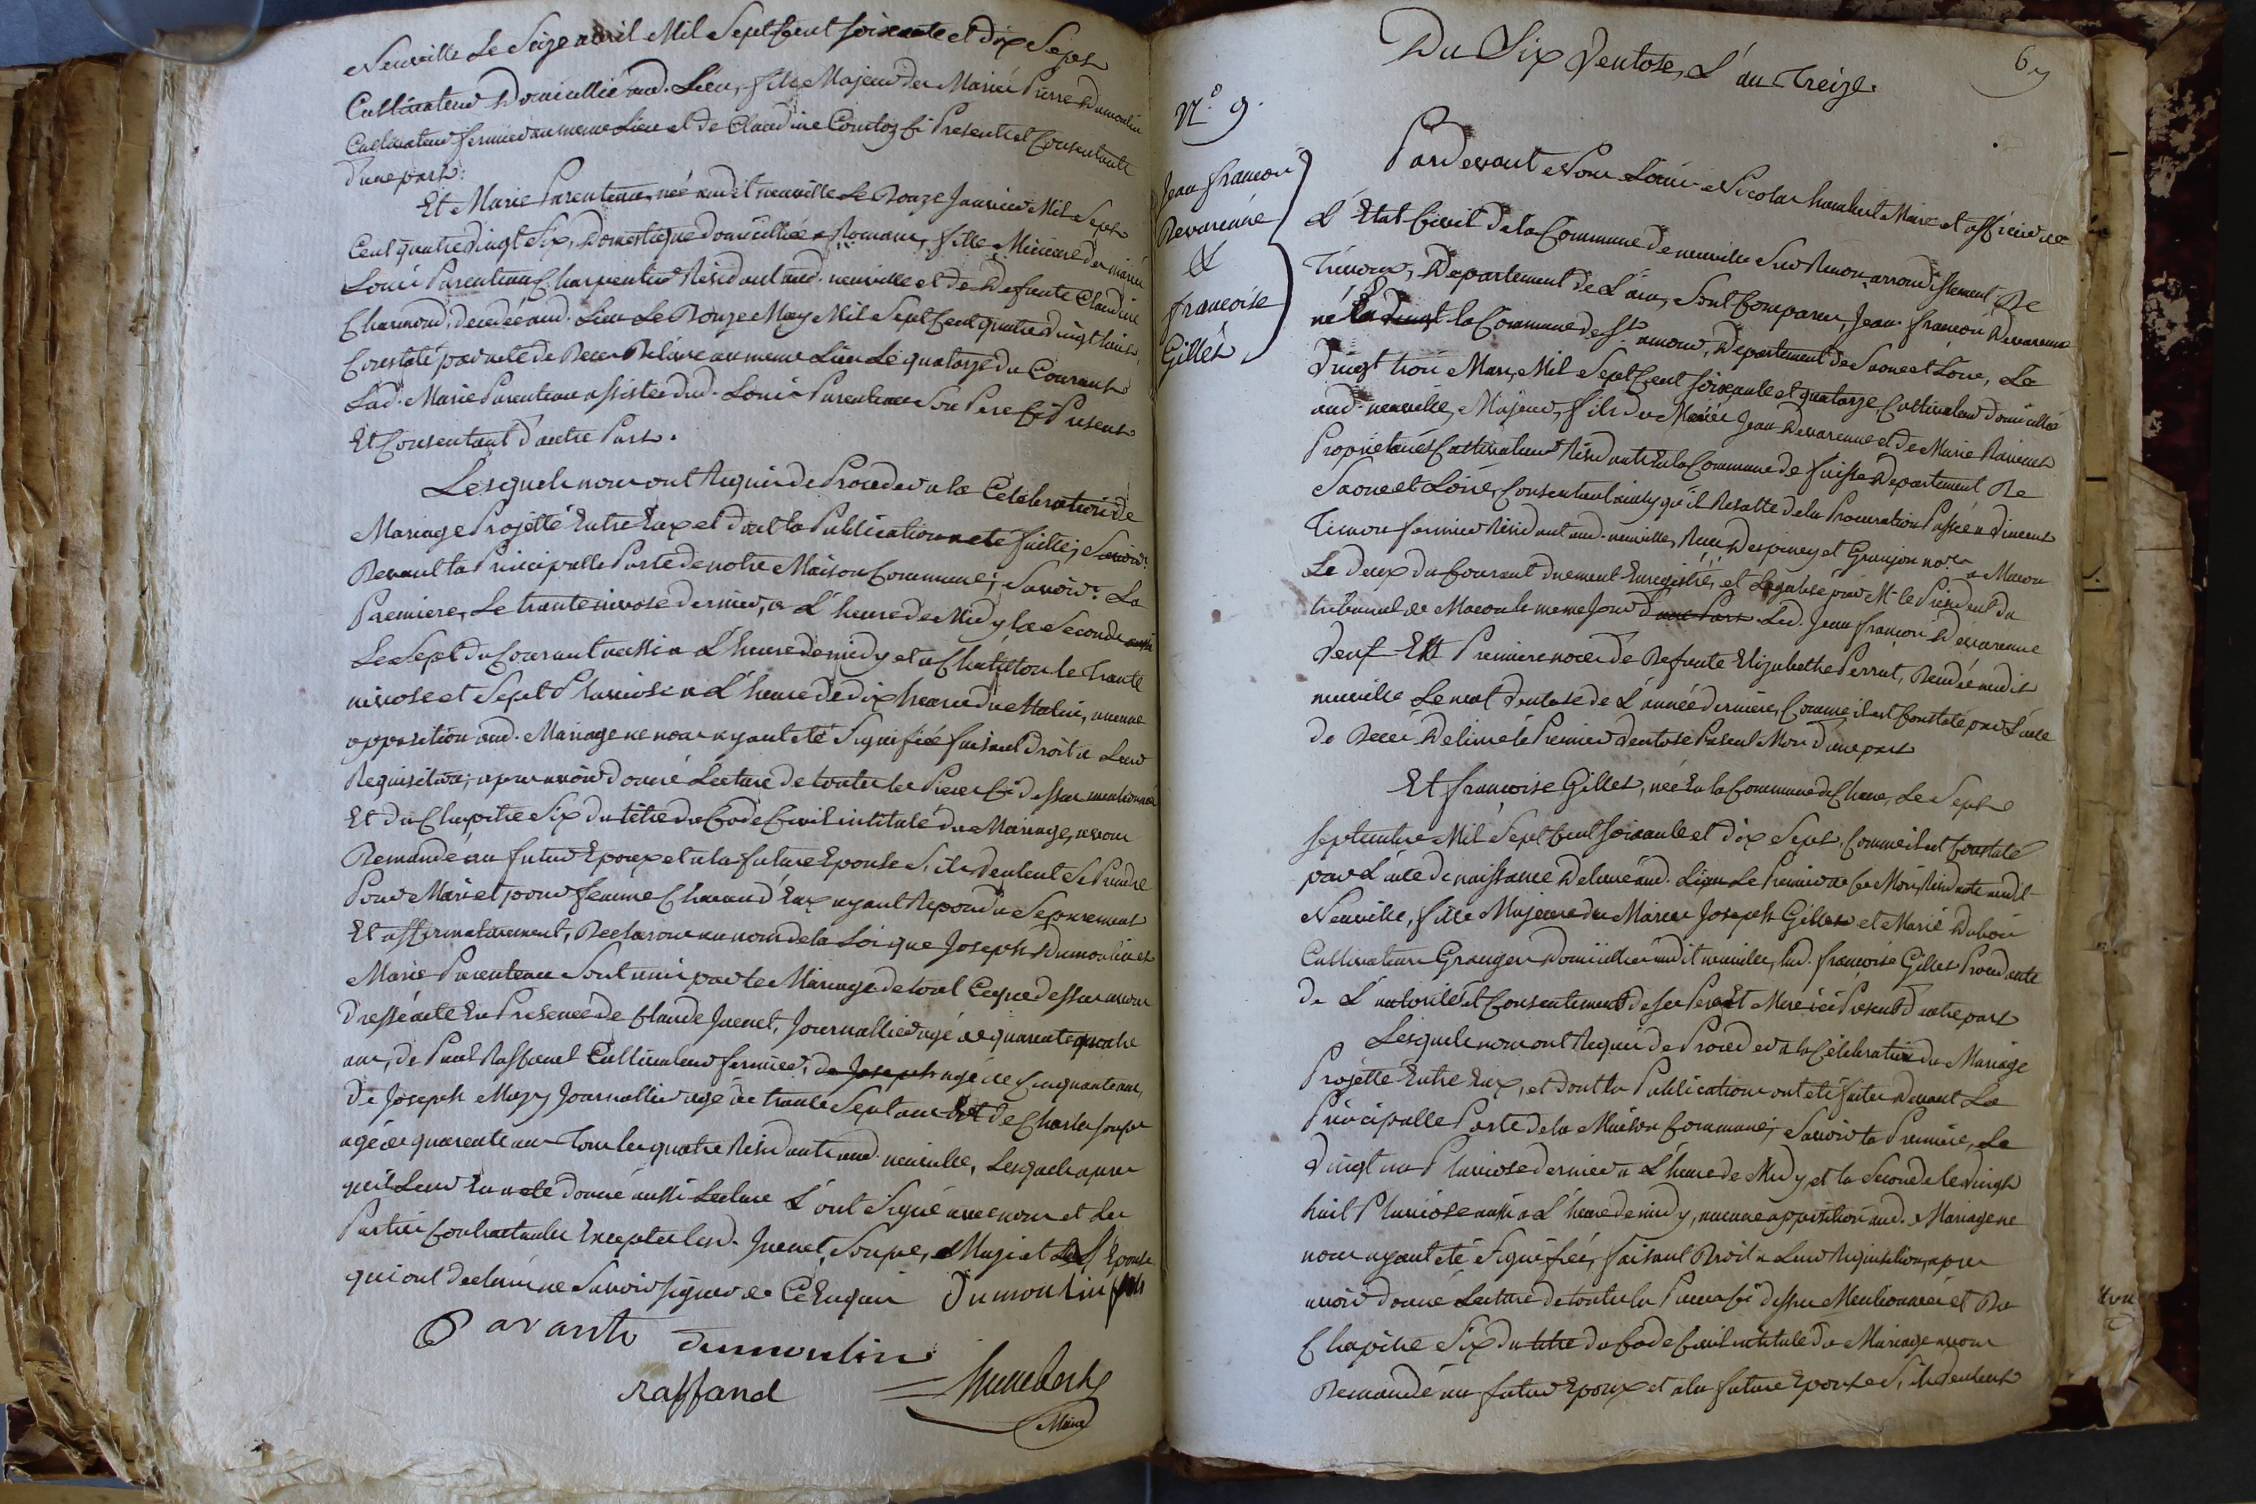 Neuville Le Seize avril Mil Sept Cent soixante et dix Sept
Cultivateur Domicillié aud. Lieu, fils Majeur des Mariés Pierre Dumoulin
Cultivateur fermier au meme Lieu et de Claudine Contoz ci Presents et Consentants
d'une part:
Et Marie Parenteau, née audit neuville Le Douze Janvier Mil Sept
Cent quatre Vingt Six, Domestique domicilliée a Romans, fille Mineure des mariés
Louis Parenteau Charpentier Résidant aud. neuville et de Defunte Claudine
Charmond, decedée aud. Lieu Le Douze May Mil Sept Cent quatre Vingt huit,
Constaté par acte de Deces Délivré au meme Lieu Le quatorze du Courant
Lad. Marie Parenteau assistée dud. Louis Parenteau Son Pere ci Present
Et Consentant d'autre Part.
Lesquels nous ont Requis de Proceder a la Célébration de
Mariage Projetté Entre Eux et dont la Publication a eté faitte; Savoir
Devant la Principalle Porte de notre Maison Commune; Savoir: La
Premiere, Le trante nivose dernier, a L'heure de Midy la Seconde aussi
Le Sept du Courant aussi a L'heure de midy et a Chatillon le Trante
nivose et Sept Pluviose a L'heure de dix heures du Matin, aucune
opposition aud. Mariage ne nous ayant eté Signifiée faisant droit a Leur
Requisition; apres avoir donné Lecture de toutes les Pieces ci dessus mentionnées
Et du Chapitre Six du titre du Code Civil intitulé du Mariage, avons
Demandé au futur Epoux et a la future Epouse S'ils Veulent Se Prendre
Pour Mari et pour femme Chacun d'Eux ayant Repondu Séparement
Et affirmativement, Declarons au nom de la Loi que Joseph Dumoulin et
Marie Parenteau Sont unis par le Mariage de tout Ce que dessus avons
dressé acte En Presence de Claude Juenet, Journallier agé de quarante quatre
ans, de Paul Raffanel Cultivateur fermier, de Joseph agé de Cinquante ans,
De Joseph Mazy Journallier agé de trante Sept ans Et de Charles Soupe
agé de quarante ans Tous les quatre Résidants aud. neuville, Lesquels apres
qu'il Leur En a eté donné aussi Lecture L'ont Signé avec nous et Les
Parties Contractantes Excepté Lesd. Juenet, Soupe, Mazi et L'Epouse
qui ont declaré ne Savoir signer de Ce Enquis Dumoulin fils
Paranto Dumoulin
raffanel humbert
Maire
Du Six Ventose, L'an Treize.
69
N.° 9.
Jean francois
Devarenne
&
francoise
Gillet
Pardevant Nous Louis Nicolas humbert Maire et officier de
L'Etat Civil de la Commune de neuville Sur Renon arrondissement De
Trévoux, Departement de L'ain, Sont Comparus, Jean francois Devarenne
né En la Commune de St. amour, Departement de Saone et Loire, Le
Vingt trois Mars, Mil Sept Cent soixante et quatorze, Cultivateur domicillié
aud. neuville, Majeur, fils des Mariés Jean Devarenne et de Marie
Proprietaires Cultivateurs Résidants En la Commune de fuissé Departement De
Saone et Loire, Consentants ainsy qu'il Résulte de la Procuration Passée a Vincent
Timon fermier Résidant aud. neuville, Recu Despiney et Granjon nores a Macon
Le Deux du Courant duement Enregistré, et Légalisé par Mr. le Président du
tribunal de Macon le meme Jour d'une Part. Led. Jean francois Devarenne
Veuf En Premieres noces de Defunte Elizabethe Perrat, Décédé audit
neuville Le neuf Ventose de L'année derniere, Comme il est Constaté par L'acte
de Deces Delivré le Premier Ventose Present Mois d'une part
Et francoise Gillet, née En la Commune de Chane, Le Sept
Septembre Mil Sept Cent soixante et dix Sept, Comme il est Constaté
par L'acte de naissance Délivré aud. Lieu Le Premier de Ce Mois, Résidante audit
Neuville, fille Majeure des Mariés Joseph Gillet et Marie Dubois
Cultivateurs Grangers Domicilliés audit neuville, lad. francoise Gillet Procedante
de L'autorité et Consentement de Ses Pere Et Mere ici Present d'autre part
Lesquels nous ont Requis de Proceder a la Célébration du Mariage
Projetté Entre Eux, et dont la Publication ont eté faites Devant La
Principalle Porte de la Maison Commune; Savoir la Premiere, Le
Vingt un Pluviose dernier a L'heure de Midy, et la Seconde le Vingt
huit Pluviose aussi a L'heure de midy, aucune opposition aud. Mariage ne
nous ayant eté Signifiée, faisant Droit a Leur Requisition, apres
avoir donné Lecture de toutes les Pieces ci dessus Mentionnées et Du
Chapitre Six du titre du Code Civil intitulé du Mariage avons
Demandé au futur Epoux et a la future Epouse S'ils Veulent